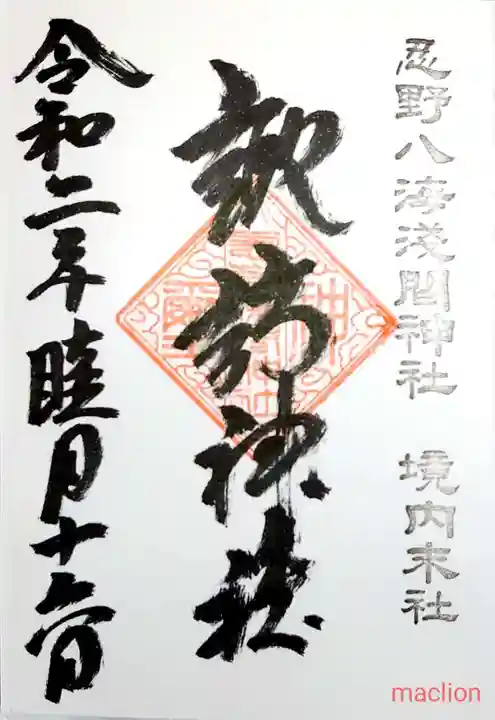 忍野八海淺間神社 境内末社
諏訪神社
令和二年睦月十六日
maclion